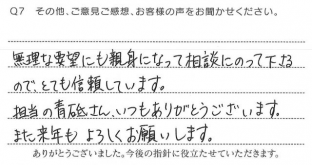 Q7 その他、ご意見ご感想、お客様の声をお聞かせください。
無理な要望にも親身になって相談にのって下さる
ので、とても信頼しています。
担当の青砥さん、いつもありがとうございます。
また来年も よろしくお願いします。
ありがとうございました。今後の指針に役立たせていただきます。